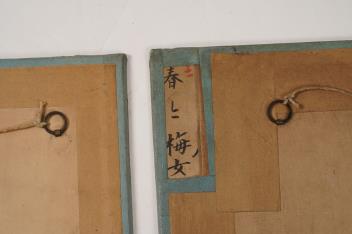 春と梅ノ女